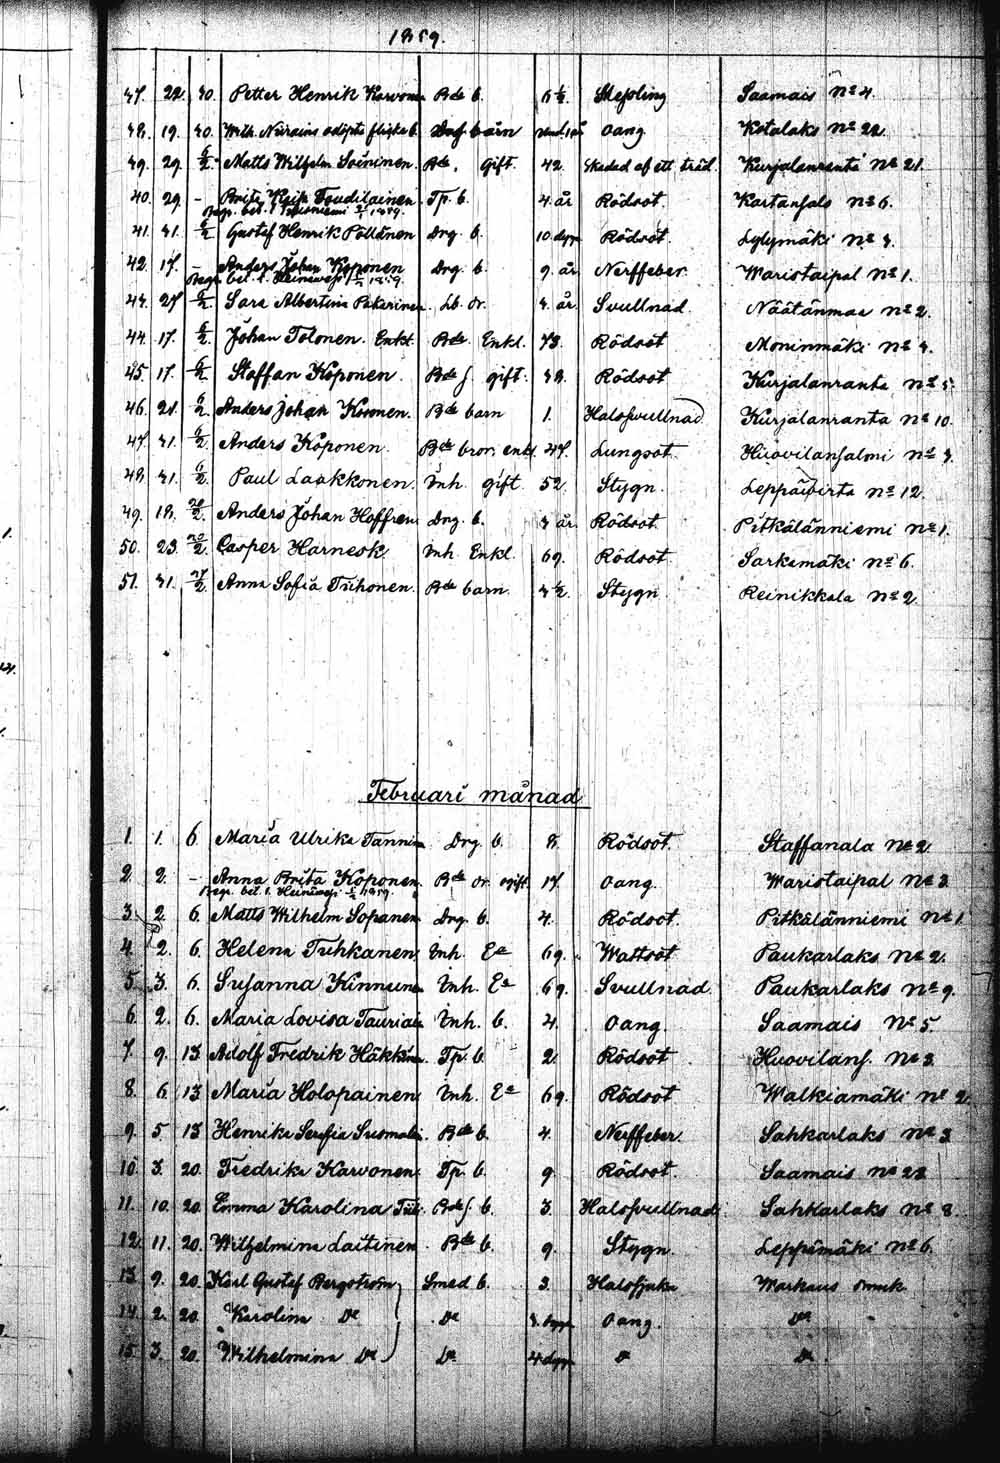 1859.
37. 22. 30. Petter Henrik Karvonen Bde b. 6½ Messling Saamais No 4.
38. 19. 30. Wilh. Nurains adopt. flicka b. barn oang Kotalaks No 22.
39. 29. 6/2. Matts Wilhelm Soininen. Bde, Gift. 42. Skadad af ett träd. Kurjalanranta No 21.
40. 29. – Brita Kaisa Toudilainen Tp. b. 4. år Rödsot. Kartansalo No 6.
Begr. bet. i
41. 31. 6/2 Gustaf Henrik Pöllänen Drg. b. 10. dgr Rödsot. Lylymäki No 3.
42. 17. – Anders Johan Koponen Drg. b. 9. år Nerffeber. Waristaipal No 1.
Begr. bet. i. Heinäwesi
43. 27 6/2. Sara Albertina Pakarinen. Lb. dr. 3. år Svullnad. Näätänmaa No 2.
44. 17. 6/2. Johan Tolonen. Enkl. Bde Enkl. 73. Rödsot Moninmäki No 3.
45. 17. 6/2 Staffan Koponen. Bde s. gift. 38. Rödsot Kurjalanranta No 5.
46. 21. 6/2. Anders Johan Kosonen. Bde barn 1. Halssvullnad Kurjalanranta No 10.
47. 31. 6/2. Anders Koponen. Bde bror. enkl 47. Lungsot. Huovilansalmi No 3.
48. 31. 6/2. Paul Laakkonen. Inh. gift. 52. Stygn. Leppäwirta No 12.
49. 18. 20/2. Anders Johan Hoffren Drg. b. 3 år Rödsot. Pitkälänniemi No 1.
50. 23. 20/2. Casper Harnesk Inh. Enkl. 69. Rödsot. Sarkamäki No 6.
51. 31. 27/2. Anna Sofia Tiihonen. Bde barn. 3½. Stygn. Reinikkala No 2.
Februari månad
1. 1. 6. Maria Ulrika Tanninen Drg b. 8. Rödsot. Staffanala No 2.
2. 2. – Anna Brita Koponen. Bde dr. ogift. 17. oang. Waristaipal No 3.
Begr. bet. i. Heinäwesi
3. 2. 6. Matts Wilhelm Sopanen Drg. b. 4. Rödsot. Pitkälänniemi No 1.
4. 2. 6. Helena Tuhkanen Inh. Ea 69. Wattsot Paukarlaks No 2.
5. 3. 6. Susanna Kinnunen Inh. Ea 69. Svullnad. Paukarlaks No 9.
6. 2. 6. Maria Lovisa Tauriainen Inh. b. 4. oang. Saamais No 5.
7. 9. 13. Adolf Fredrik Häkkinen Tp. b. 2. Rödsot Huovilans. No 3.
8. 6. 13. Maria Holopainen Inh. Ea 69. Rödsot Walkiamäki No 2.
9. 5. 13 Henrika Serafia Suomalain. Bde b. 4. Nerffeber. Sahkarlaks No 3.
10. 3. 20. Fredrika Karvonen Tp. b. 9. Rödsot. Saamais No 23
11. 10. 20. Emma Karolina Bde s. b. 3. Halssvullnad Sahkarlaks No 8.
12. 11. 20. Wilhelmina Laitinen. Bde b. 9. Stygn. Leppämäki No 6.
13. 9. 20. Karl Gustaf Bergström Smed b. 3. Halssjuka Warkaus bruk
14. 2. 20. Karolina Do Do dgr oang. Do
15. 3. 20. Wilhelmina Do Do 4 dgr D Do.